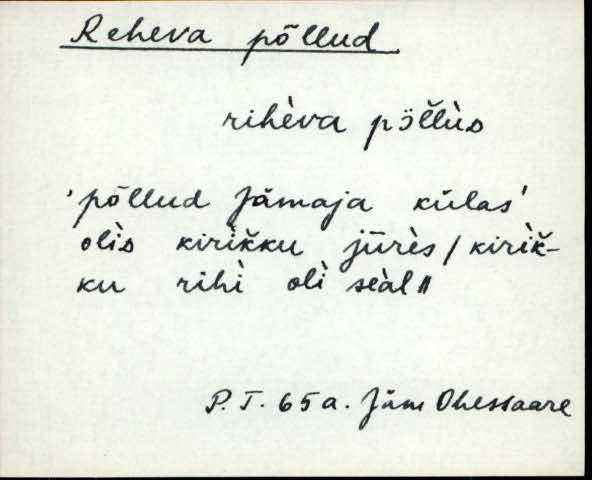 Reheva põllud
rihèva pöl̆l̆ùs
'põllud Jämaja külas'
olìs kirìk̆ku jūrès / kirìk̆-
ku rihì olì seàl //
P. T. 65 a. Jäm Ohessaare